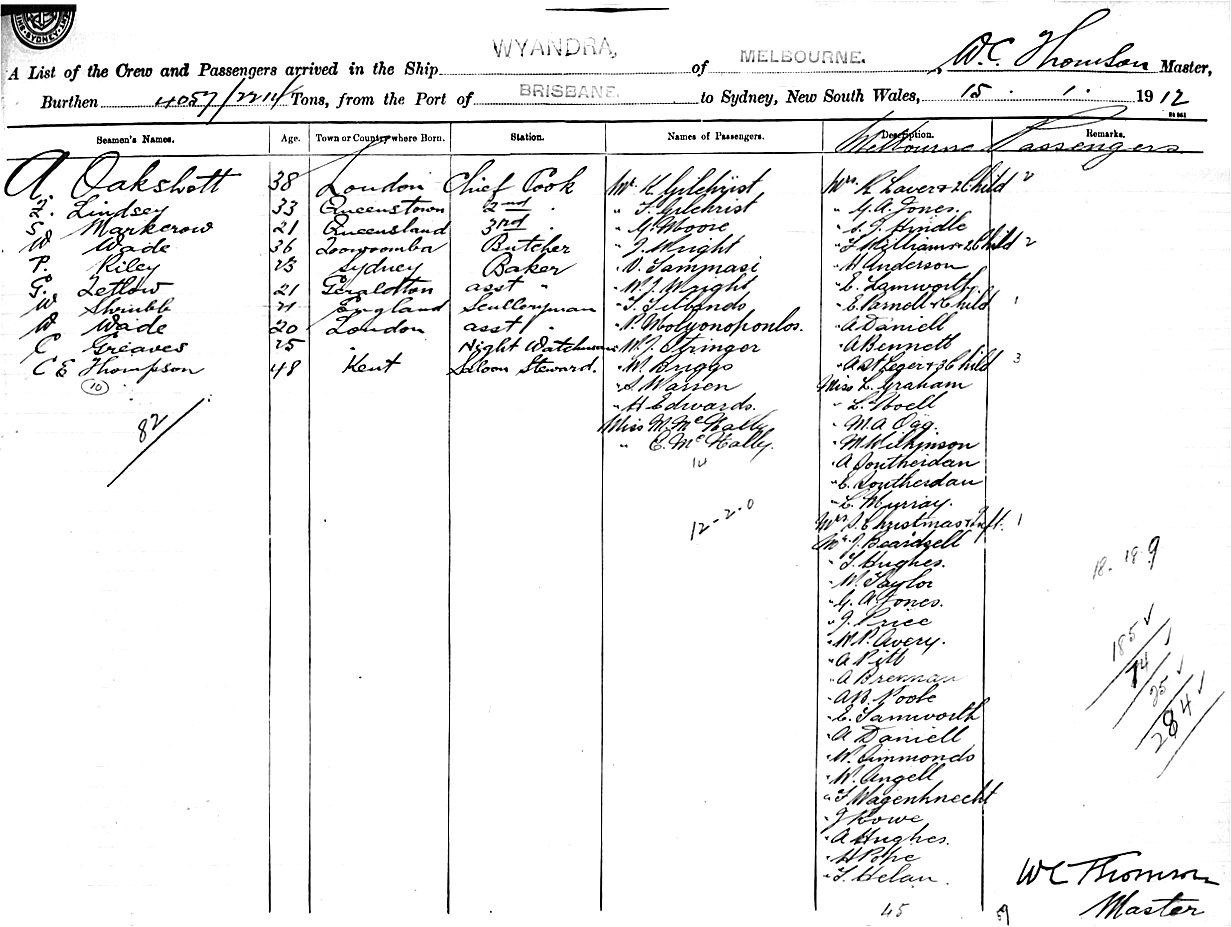 WYANDRA, MELBOURNE.
A List of the Crew and Passengers arrived in the Ship WYANDRA, of MELBOURNE. W.C. Thomson Master,
Burthen 4057/2211 Tons, from the Port of BRISBANE. to Sydney, New South Wales, 15 . 1 . 1912
Seamen's Names. Age. Town or Country where Born. Station. Names of Passengers. Description. Remarks.
Melbourne Passengers
A. Oakshott 38 London Chief Cook Mr. K Gilchrist Mrs R Laver & 2 Child 2
Lindsey 33 Queenstown 2nd " " F. Gilchrist " G.A. Jones.
S. Markerow 21 Queensland 3rd " " G. Moore " S. J. Hindle
W Wade 36 Toowoomba Butcher " J. Wright " F Williams & 2 Child 2
P. Riley 23 Sydney Baker " V. Tammasi " H. Anderson
G. Tetlow 21 Geraldton asst " " W. J. Wright " E. Tamworthy
W Shrubb 21 England Sculleryman " T. Tibbands " E. Pernell & Child 1
W Wade 20 London asst " " P. Molyonoponlos. " A Daniell
C Greaves 25 " Night Watchman " W. J. Stringer " A Bennett
C E Thompson 48 Kent Saloon Steward. " W. Briggs " A St Leger & 3 Child 3
10 " S Warren Miss L. Graham
82 " H Edwards. " L. Noell
Miss M. McNally " M A Ogg.
" E. McNally. " M Wilkinson
14 " A Southerdan
" E. Southerdan
" L. Murray.
12-2-0 Mrs S. Christmas & Inft. 1
Mr. J. Beardsell
" T. Hughes.
" W. Taylor
" G. A. Jones.
" J. Price
" W. P. Avery.
" A Pitt
" A Brennan
" A B. Poole
" E. Tamworth
" A Daniell
" W. Simmonds
" W. Angell
" F Wagenknecht
" J Rowe
" A Hughes.
" H Pope
" T. Helan.
45 59
18. 18. 9
185
14
25
284
W C Thomson
Master